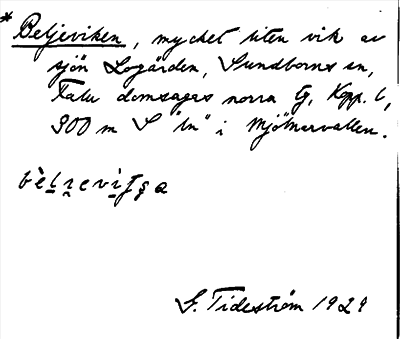 * Beljeviken, mycket liten vik av
sjön Logärden, Sundborns sn,
Falu domsagas norra tg, Kopp. l,
300 m S "ln" i Mjölnarvallen.
G. Tideström 1929